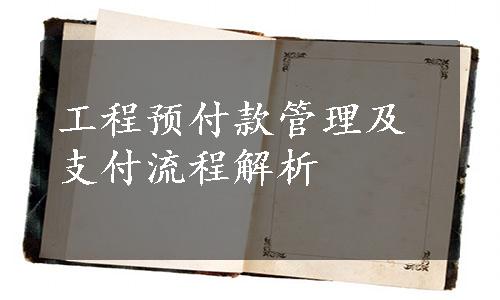 工程预付款管理及
支付流程解析